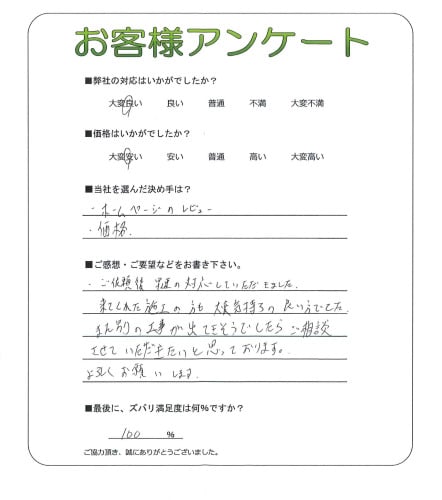 お客様アンケート
■弊社の対応はいかがでしたか?
大変良い 良い 普通 不満 大変不満
■価格はいかがでしたか?
大変安い 安い 普通 高い 大変高い
■当社を選んだ決め手は?
・ホームページのレビュー
・価格.
■ご感想・ご要望などをお書き下さい。
・ご依頼後 早速の対応していただきました.
来てくれた施工の方も 大変気持ちの良い方でした.
また別の工事が出てきそうでしたらご相談
させていただきたいと思っております.
よろしくお願いします.
■最後に、ズバリ満足度は何%ですか?
100 %
ご協力頂き、誠にありがとうございました。